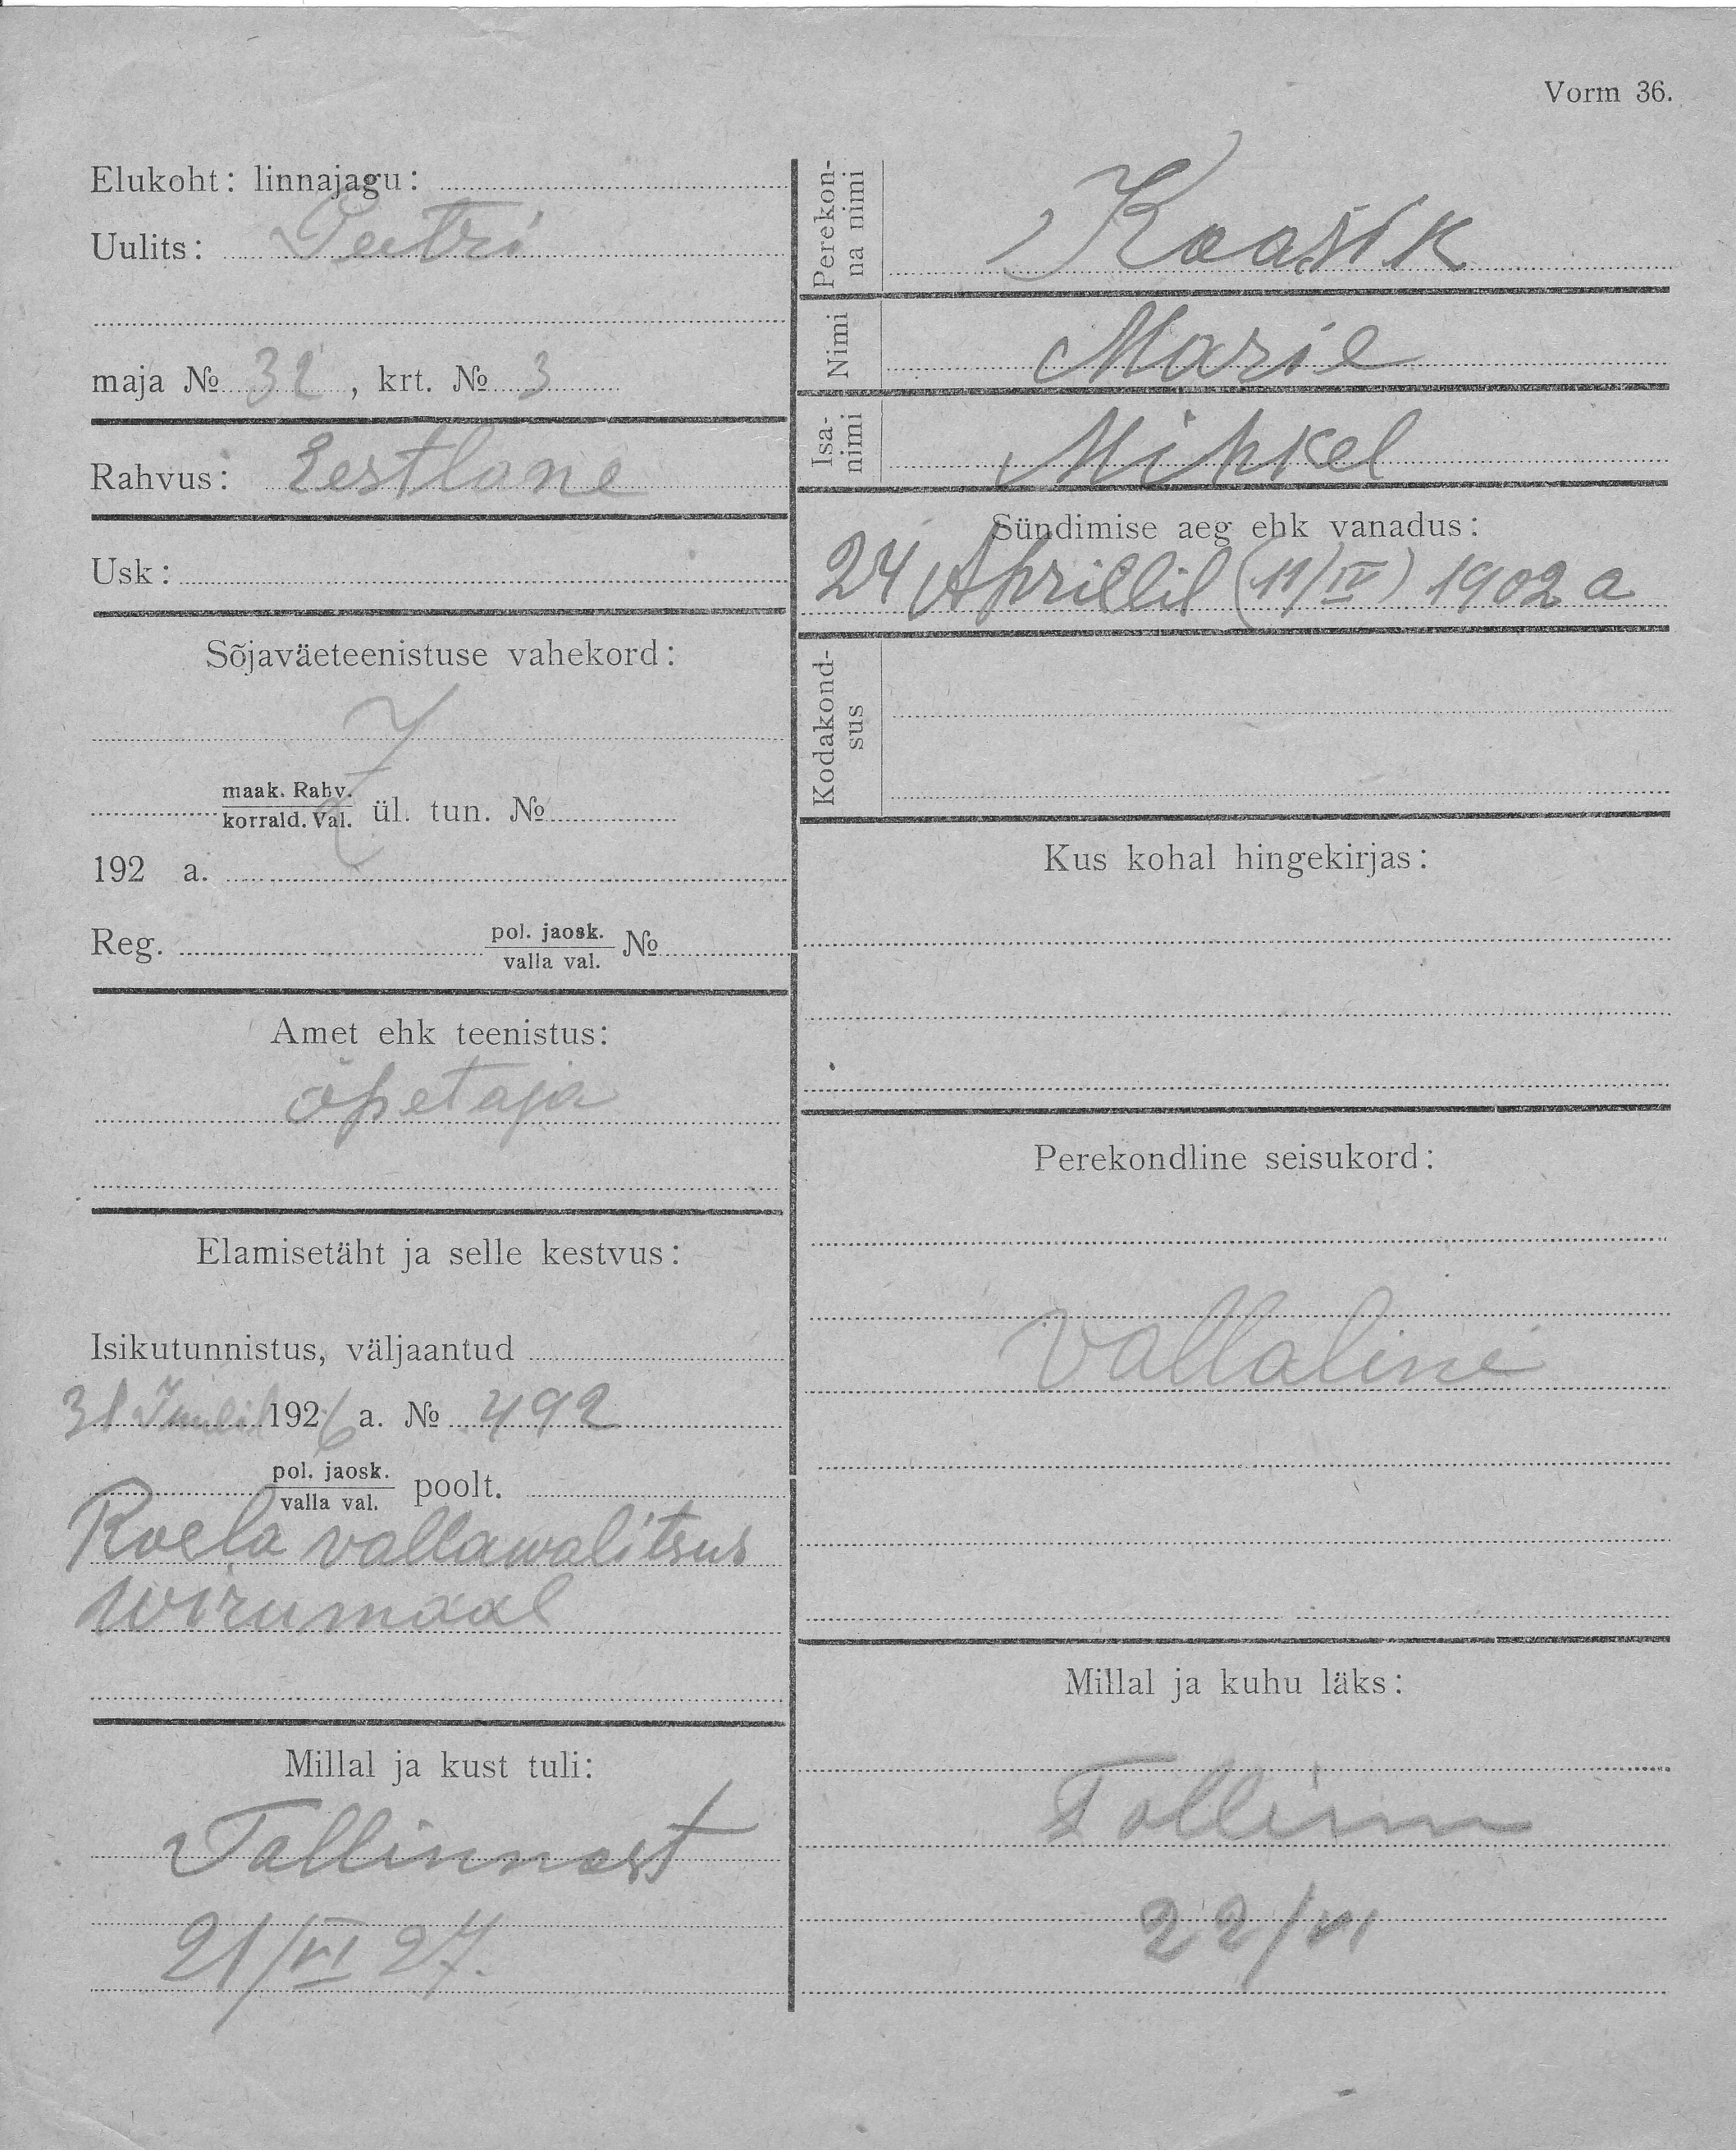 Vorm 36.
Elukoht: linnajagu:
Uulits: Peetri
maja № 32, krt. № 3
Rahvus: Eestlane
Usk:
Sõjaväeteenistuse vahekord:
maak. Rahv.
korrald. Val. ül. tun. №
192 a.
Reg. pol. jaosk. №
valla val.
Amet ehk teenistus:
õpetaja
Elamisetäht ja selle kestvus:
Isikutunnistus, väljaantud
31 Juulil 1926 a. № 492
pol. jaosk. poolt.
valla val.
Roela vallawalitsus
Wirumaal
Millal ja kust tuli:
Tallinnast
21/VI 27.
Perekonna nimi
Kaasik
Nimi
Marie
Isanimi
Mihkel
Sündimise aeg ehk vanadus:
24 Aprillil (11/IV) 1902 a
Kodakondsus
Kus kohal hingekirjas:
Perekondline seisukord:
Vallaline
Millal ja kuhu läks:
Tallinn
22/VI